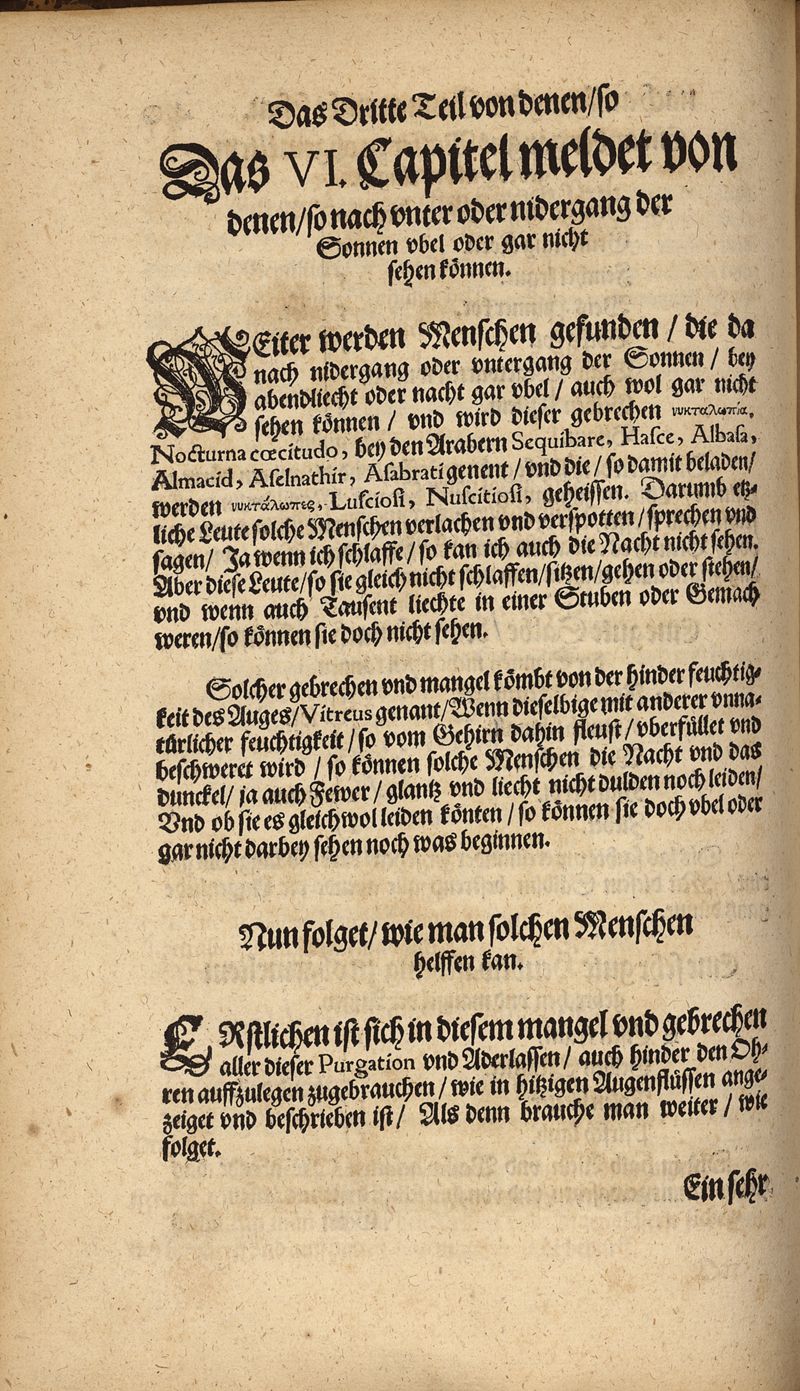 Das Dritte Teil von denen/so
Das VI. Capitel meldet von
denen/so nach vnter oder nidergang der
Sonnen vbel oder gar nicht
sehen können.
WEiter werden Menschen gefunden / die da
nach nidergang oder vntergang der Sonnen / bey
abendliecht oder nacht gar vbel / auch wol gar nicht
sehen können / vnd wird dieser gebrechen νυκταλωπία,
Nocturna cœcitudo, bey den Arabern Sequibare, Hasce, Albasa,
Almacid, Aselnathir, Asabrati genent / vnd die / so damit beladen/
werden νυκτάλωπες, Lusciosi, Nuscitiosi, geheissen. Darumb etz-
liche Leute solche Menschen verlachen vnd verspotten / sprechen vnd
sagen/ Ja wenn ich schlaffe / so kan ich auch die Nacht nicht sehen.
Aber diese Leute/so sie gleich nicht schlaffen/sitzen/gehen oder stehen/
vnd wenn auch Tausent liechte in einer Stuben oder Gemach
weren/so können sie doch nicht sehen.
Solcher gebrechen vnd mangel kömbt von der hinder feuchtig-
keit des Auges/Vitreus genant/Wenn dieselbige mit anderer vnna-
türlicher feuchtigkeit / so vom Gehirn dahin fleust / vberfüllet vnd
beschweret wird / so können solche Menschen die Nacht vnd das
dunckel/ ja auch Fewer / glantz vnd liecht nicht dulden noch leiden/
Vnd ob sie es gleichwol leiden könten / so können sie doch vbel oder
gar nicht darbey sehen noch was beginnen.
Nun folget/ wie man solchen Menschen
helffen kan.
ERstlichen ist sich in diesem mangel vnd gebrechen
aller dieser Purgation vnd Aderlassen / auch hinder den Oh-
ren auffzulegen zugebrauchen / wie in hitzigen Augenflüssen ange-
zeiget vnd beschrieben ist / Als denn brauche man weiter / wie
folget.
Ein sehr